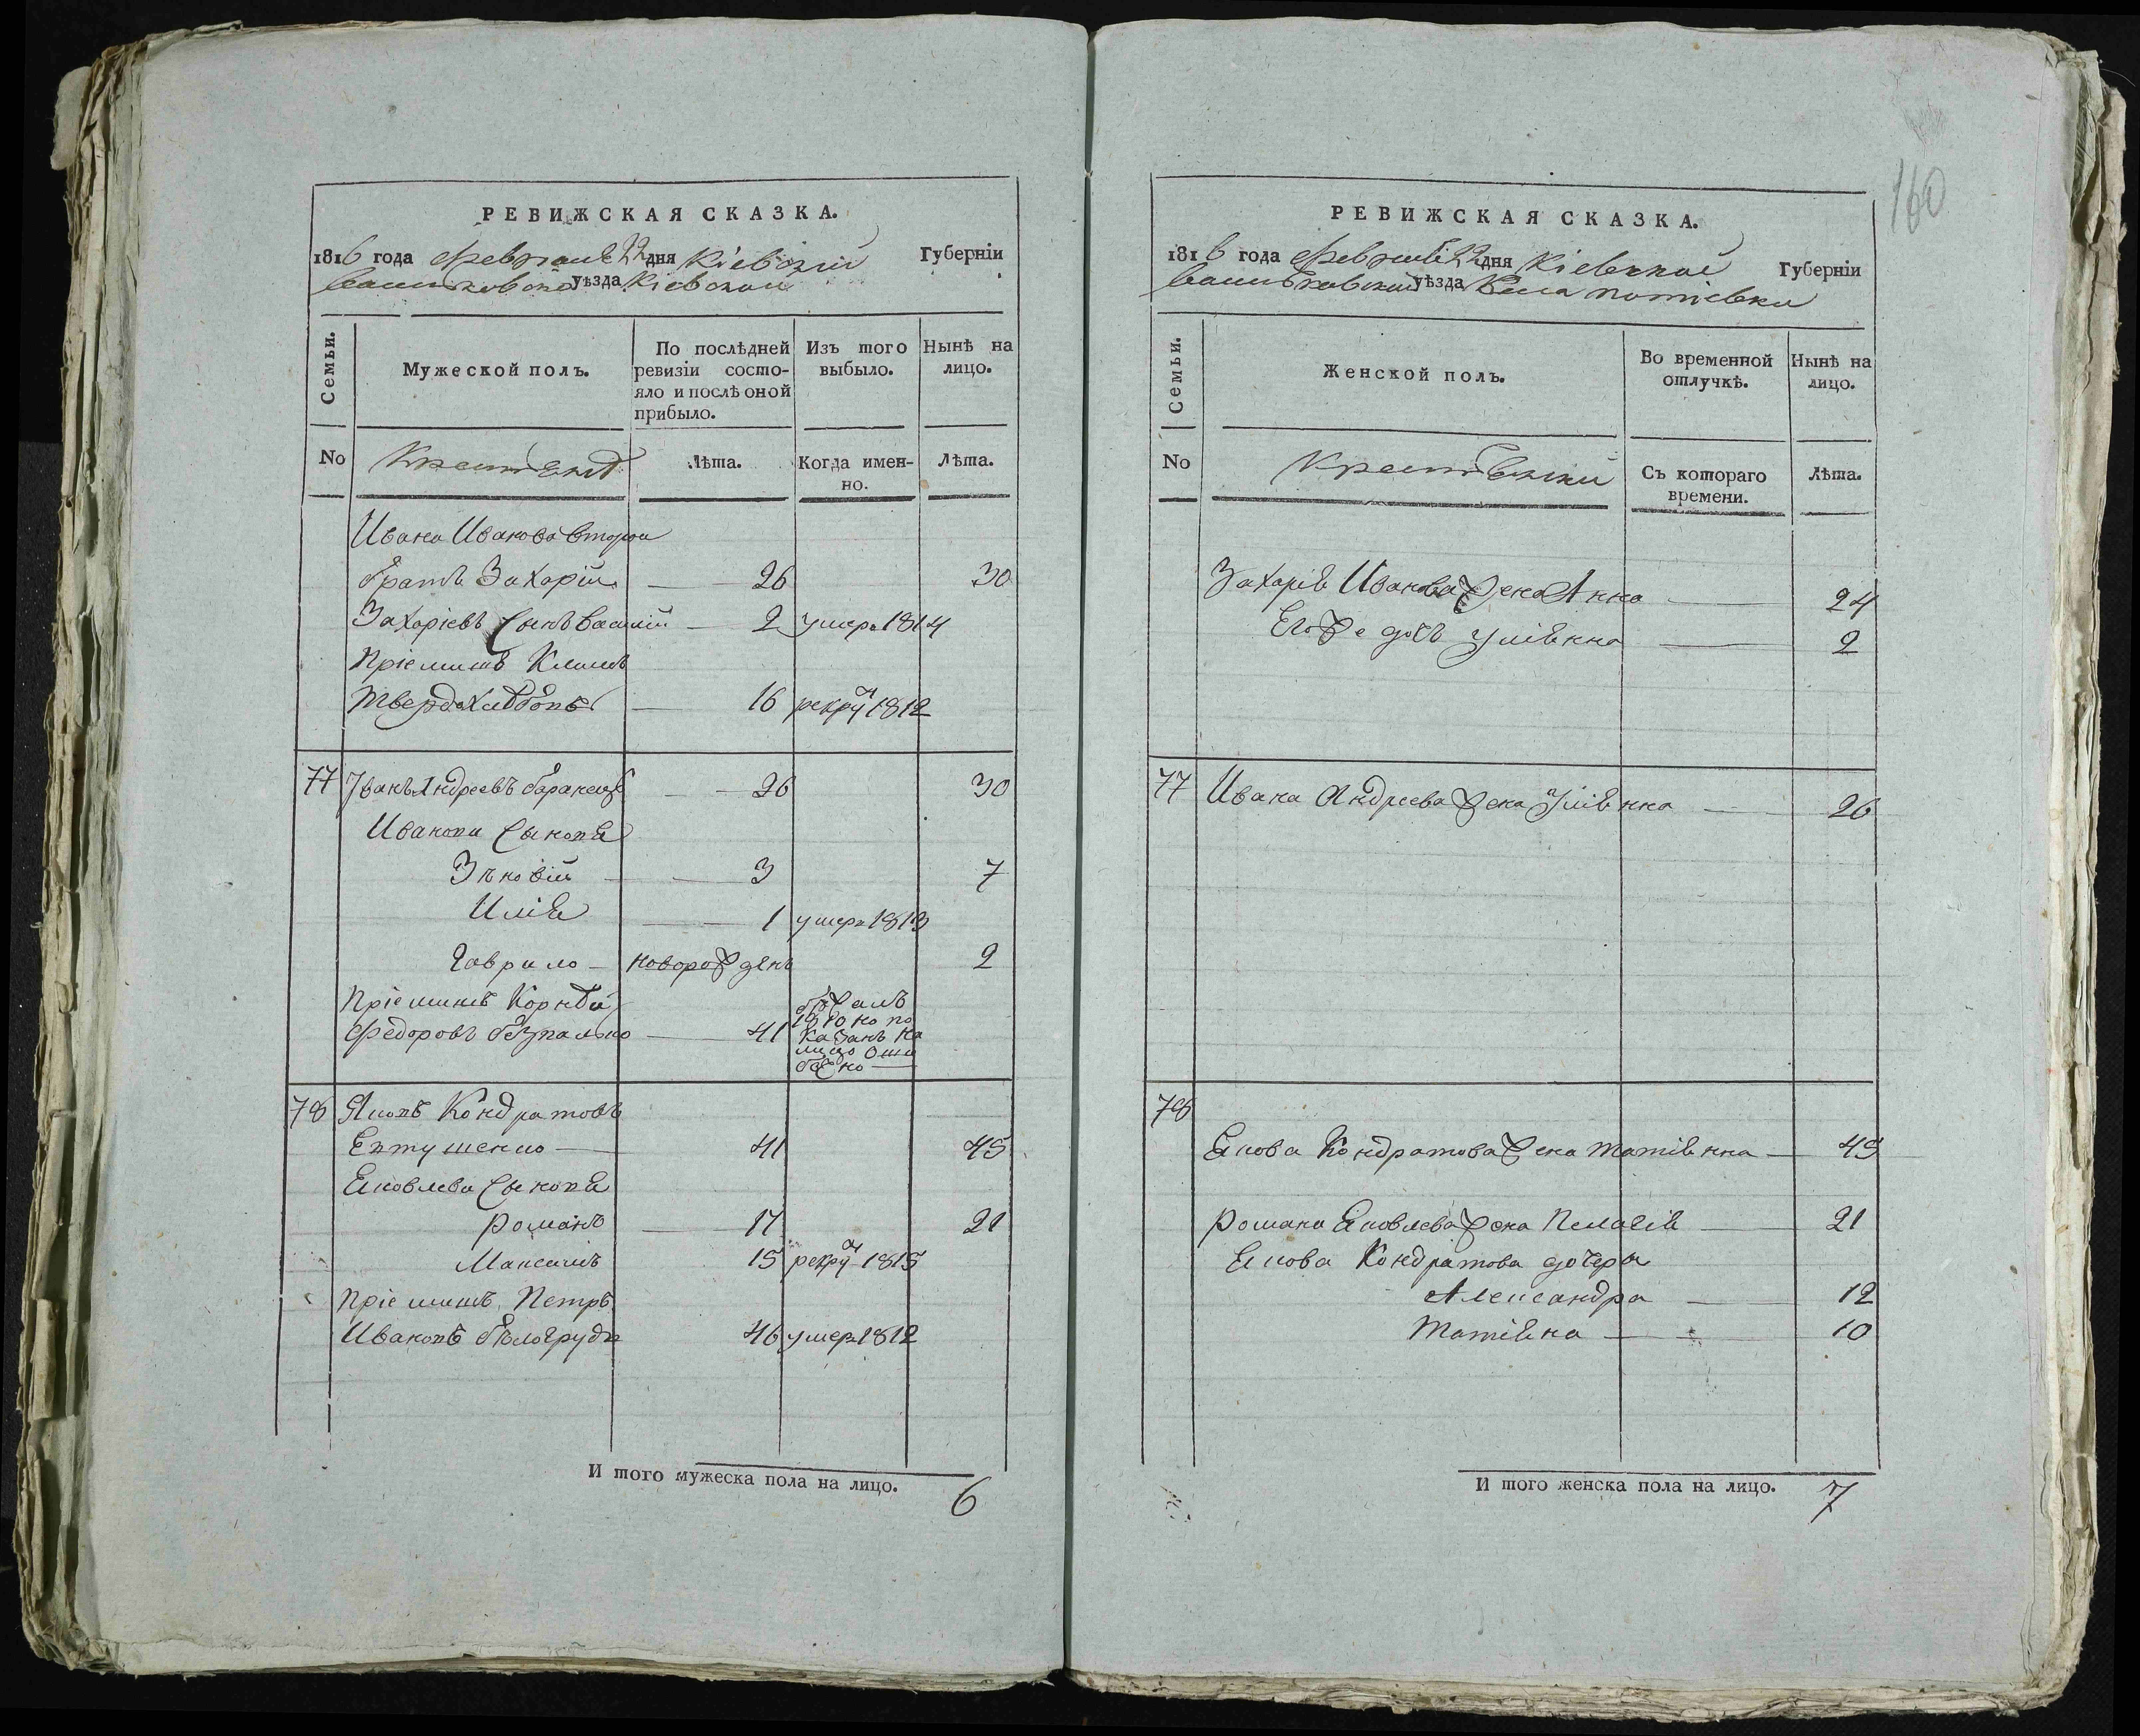 160
РЕВИЖСКАЯ СКАЗКА.
1816 года февраля 22 дня Кіевской Губерніи
Васильковского уѣзда Кіевской
Семьи.
Мужеской полъ.
По послѣдней ревизіи состо-
яло и послѣ оной прибыло.
Изъ того выбыло.
Нынѣ на лицо.
No
Крестьянъ
Лѣта.
Когда имен-
но.
Лѣта.
Ивана Иванова второй
братъ Захарій 26 30
Захаріевъ сынъ Василій 2 умеръ 1814
Пріемишъ Климъ
Твердохлѣбовъ 16 рекрут 1812
77 Иванъ Андреевъ баранецъ 26 30
Ивановы сыновя
Зѣновій 3 7
Илія 1 умеръ 1813
Гаврило новорожденъ 2
Пріемишъ Корнѣй
Федоровъ безпалько 41 бѣжалъ
1810 но по
казанъ на
лицо оши
бочно
78 Яковъ Кондратовъ
Евтушенко 41 45
Яковлева сыновя
романъ 17 21
Максимъ 15 рекрут 1815
Пріемишъ Петръ
Ивановъ бѣлогрудъ 46 умеръ 1812
И того мужеска пола на лицо. 6
РЕВИЖСКАЯ СКАЗКА.
1816 года февраля 22 дня Кіевской Губерніи
Васильковской уѣзда Села потіевки
Семьи.
Женской полъ.
Во временной отлучкѣ.
Нынѣ на лицо.
No
Крестьянки
Съ котораго
времени.
Лѣта.
Захарія Иванова жена Анна 24
Его же дочь Уліянна 2
77 Ивана Андреева жена Уліянна 26
78
Якова Кондратова жена татіянна 45
романа Яковлева жена Пелагія 21
Якова Кондратова дочери
Александра 12
татіяна 10
И того женска пола на лицо. 7